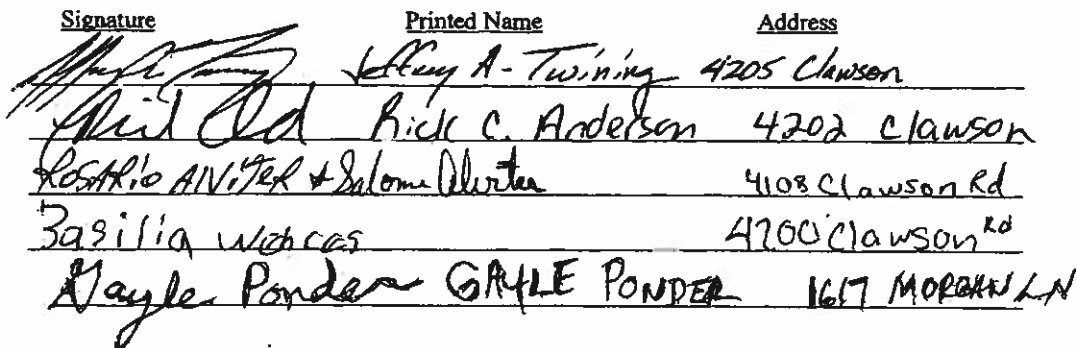 Signature Printed Name Address
Jeffrey A - Twining 4205 Clawson
Rick C. Anderson 4202 Clawson
Rosario Alviter & Salome Alviter 4108 Clawson Rd
Basilia 4200 Clawson Rd
Gayle Ponder GAYLE PONDER 1617 MORGAN LN